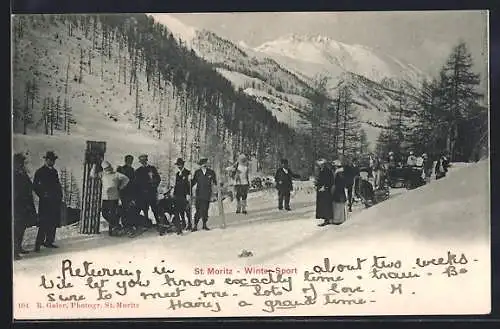 St. Moritz - Winter Sport
Returning in about two weeks.
Will let you know exactly time, train. - Be
Sure to meet me. Lots of love. H.
Having a grand time -
104 R. Guler, Photogr. St. Moritz